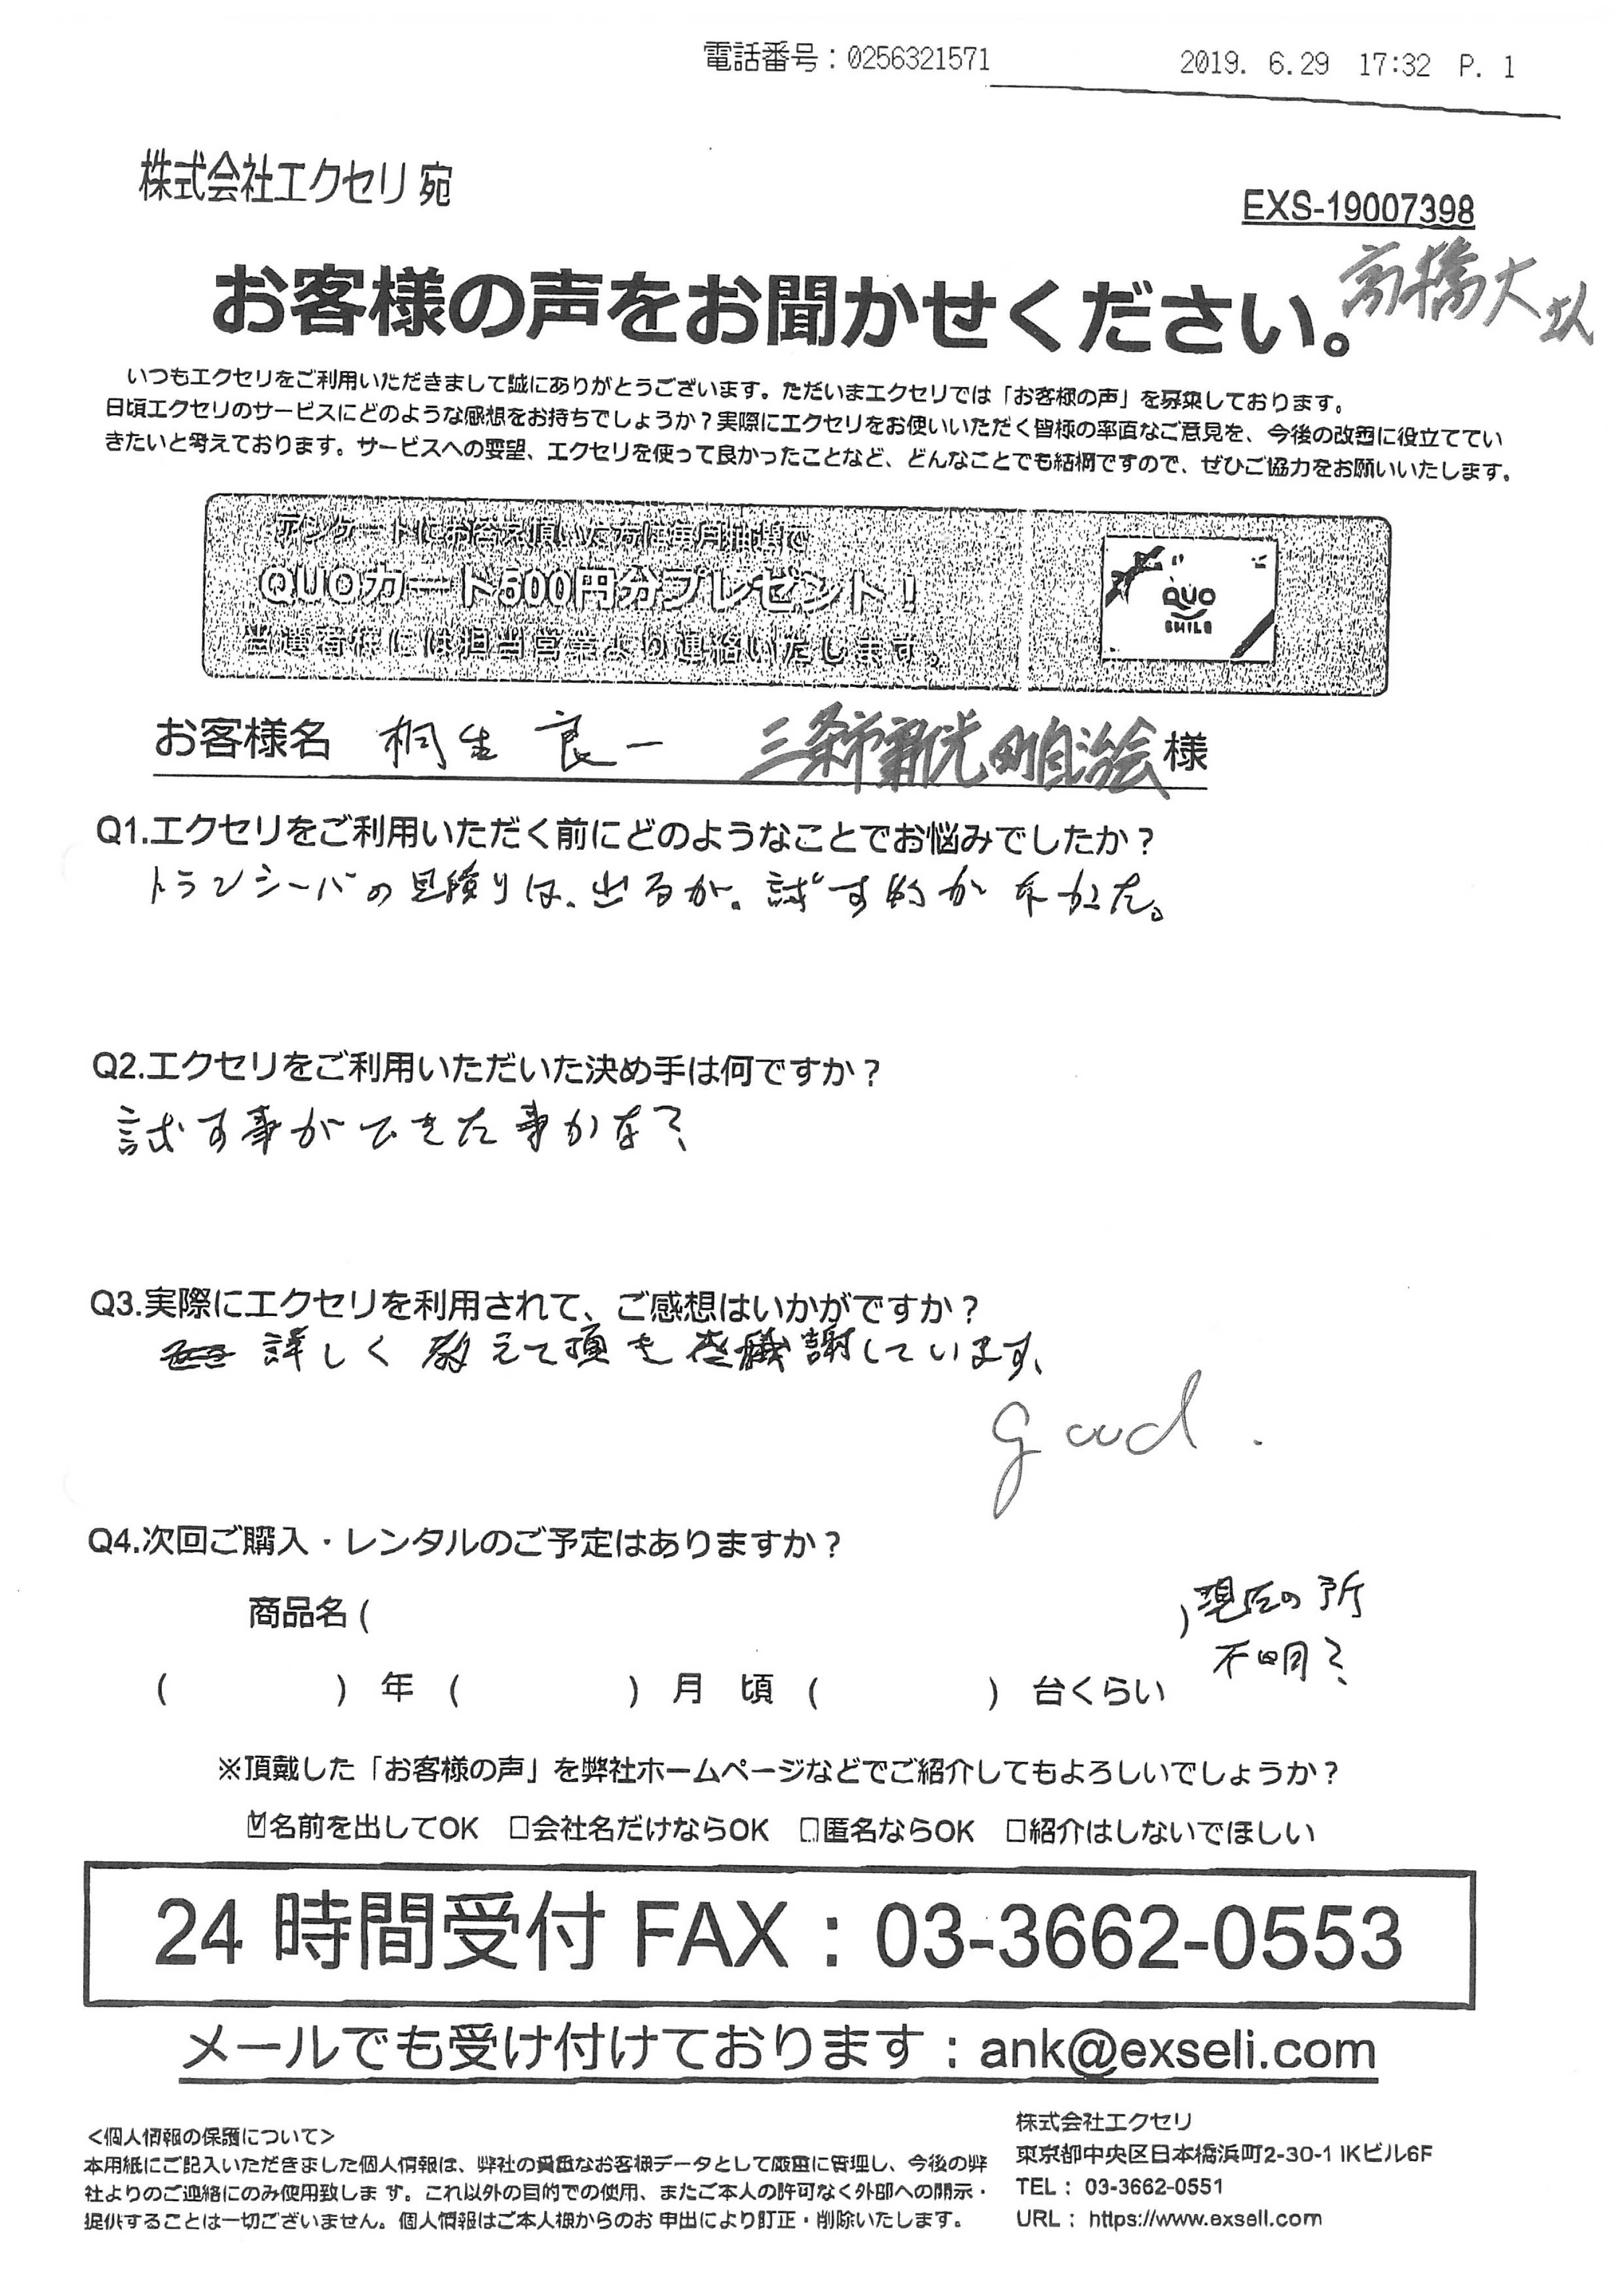 電話番号：0256321571 2019. 6.29 17:32 P. 1
株式会社エクセリ 宛
EXS-19007398
高橋大
お客様の声をお聞かせください。
いつもエクセリをご利用いただきまして誠にありがとうございます。ただいまエクセリでは「お客様の声」を募集しております。
日頃エクセリのサービスにどのような感想をお持ちでしょうか？実際にエクセリをお使いいただく皆様の率直なご意見を、今後の改善に役立ててい
きたいと考えております。サービスへの要望、エクセリを使って良かったことなど、どんなことでも結構ですので、ぜひご協力をお願いいたします。
アンケートにお答え頂いた方に毎月抽選で
QUOカード500円分プレゼント！
当選者様には担当営業より連絡いたします。
QUO
SMILE
お客様名 桐生 良一 三条市新光町自治会 様
Q1.エクセリをご利用いただく前にどのようなことでお悩みでしたか？
トランシーバの見積りは、出るが。試す物が
Q2.エクセリをご利用いただいた決め手は何ですか？
試す事ができた事かな？
Q3.実際にエクセリを利用されて、ご感想はいかがですか？
詳しく教えて頂き感謝しています、
good.
Q4.次回ご購入・レンタルのご予定はありますか？
商品名（ ）現在の所
不明？
（ ）年（ ）月 頃（ ）台くらい
※頂戴した「お客様の声」を弊社ホームページなどでご紹介してもよろしいでしょうか？
☑名前を出してOK □会社名だけならOK □匿名ならOK □紹介はしないでほしい
24 時間受付 FAX：03-3662-0553
メールでも受け付けております：ank@exseli.com
＜個人情報の保護について＞
本用紙にご記入いただきました個人情報は、弊社の貴重なお客様データとして厳重に管理し、今後の弊
社よりのご連絡にのみ使用致します。これ以外の目的での使用、またご本人の許可なく外部への開示・
提供することは一切ございません。個人情報はご本人様からのお申出により訂正・削除いたします。
株式会社エクセリ
東京都中央区日本橋浜町2-30-1 IKビル6F
TEL： 03-3662-0551
URL： https://www.exseli.com